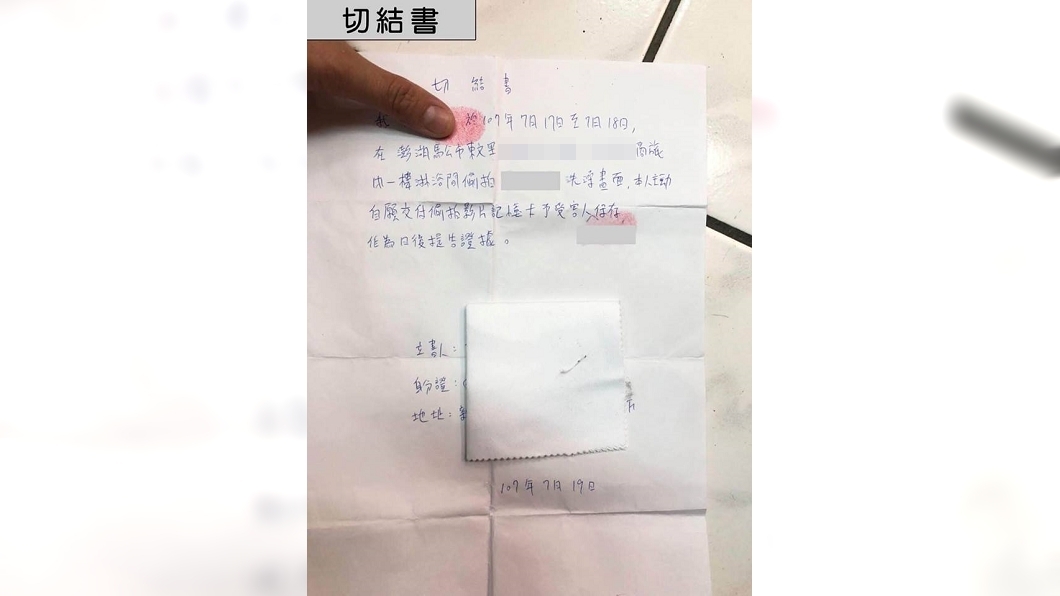 切結書
切結書
我 於107年7月17日至7月18日,
在澎湖馬公市東文里 商旅
內一樓淋浴間偷拍 洗澡畫面,本人主動
自願交付偷拍影片記憶卡予受害人保存,
作為日後提告證據。
立書人:
身份證:
地址:新
107年7月19日